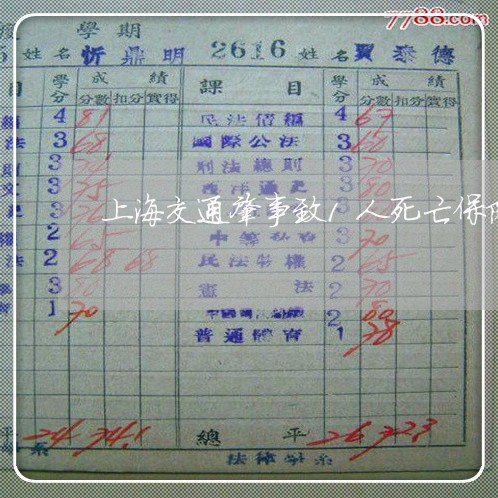 7788.com
學期
5 姓名 忻鼎明 2616 姓名 賈泰德
目 學分 成績 課目 學分 成績
分數 扣分 實得 分數 扣分 實得
4 81 民法債編 4 67
法 3 68 國際公法 3 60
3 刑法總則 3 70
3 75 3 80
上海交通肇事致1人死亡保
2 65 3 70
法 2 68 68 民法物權 2 65
3 80 憲法 2 70
1 70 2 80
普通體育 1 78
平 24 74.1 總平 26 72.3
系 法律學系